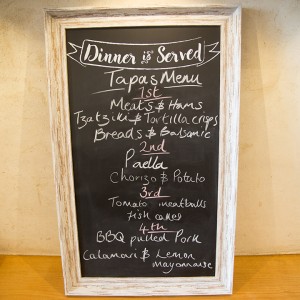 Dinner is Served
Tapas Menu
1st
Meats & Hams
Tzatziki & Tortilla crisps
Breads & Balsamic
2nd
Paella
Chorizo & Potato
3rd
Tomato meatballs
Fish cakes
4th
BBQ pulled Pork
Calamari & Lemon
mayonnaise